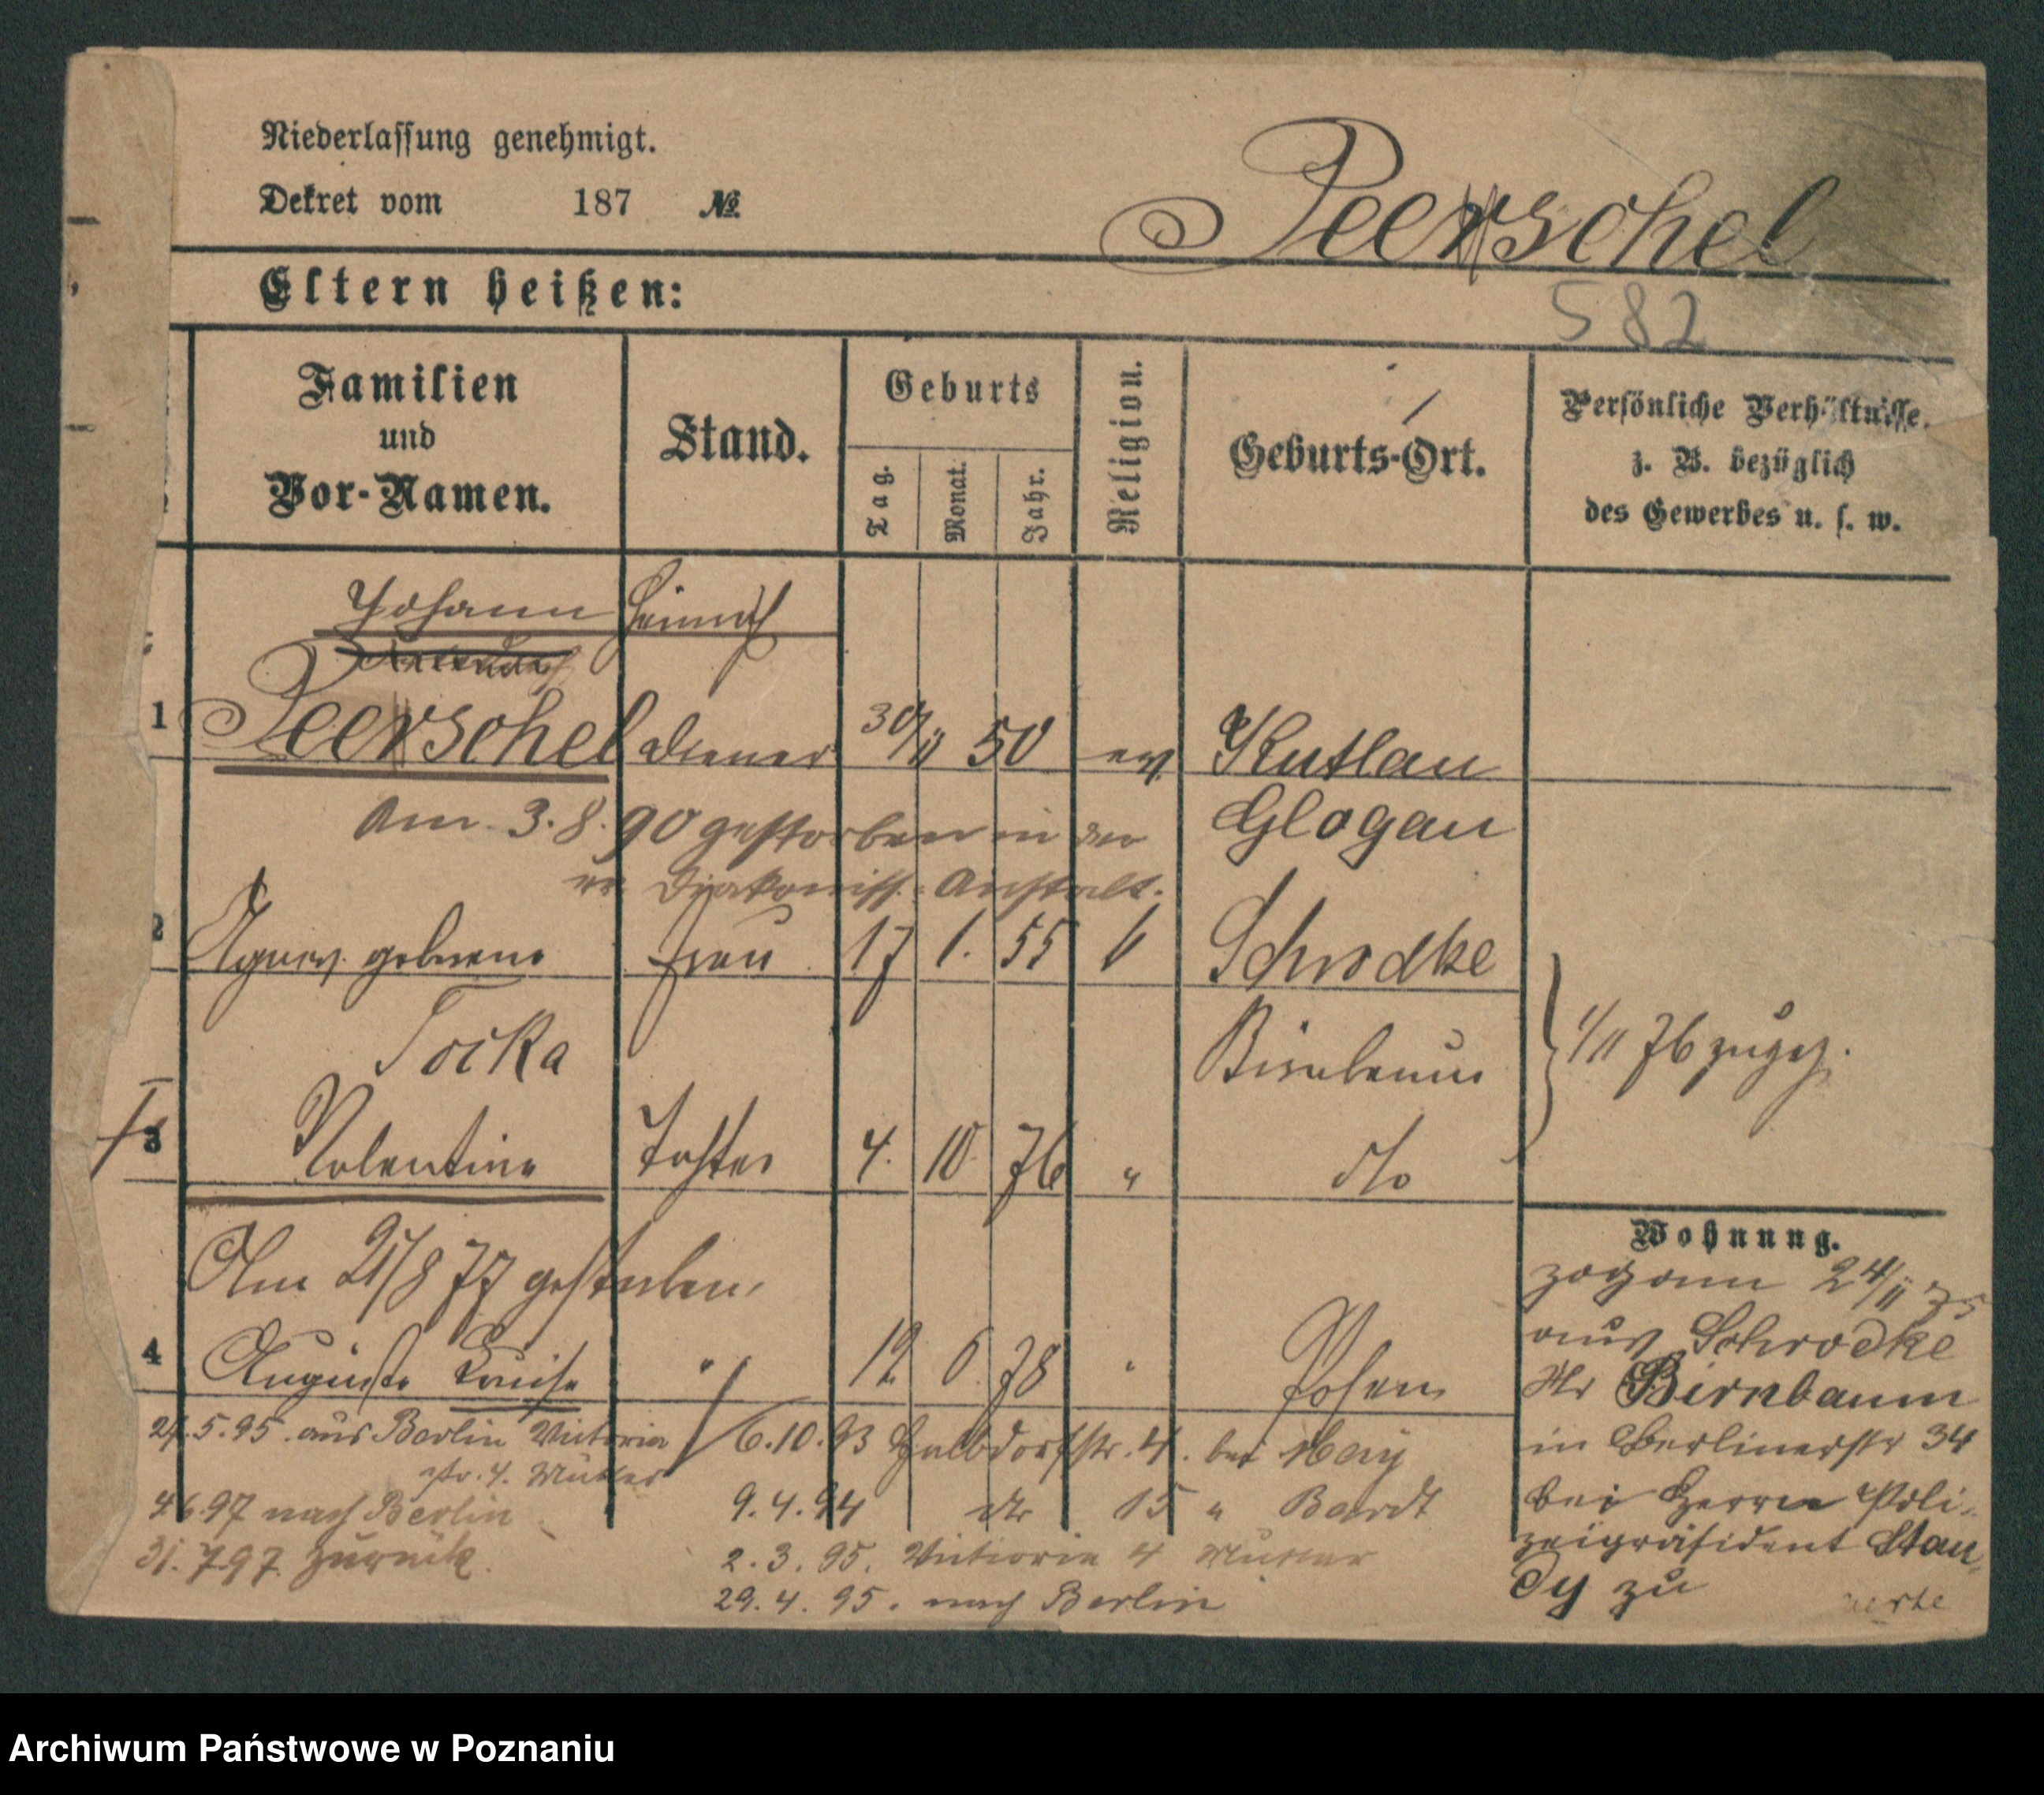 Niederlassung genehmigt.
Dekret vom 187 №
Peerschel
Eltern heißen:
582
Familien
und
Vor-Namen.
Stand.
Geburts
Tag.
Monat.
Jahr.
Religion.
Geburts-Ort.
Persönliche Verhältnisse.
z. B. bezüglich
des Gewerbes u. s. w.
Johann Heinrich
1 Peerschel Diener 30/11 50 ev. Kutlau
Am 3.8.90 gestorben in der Glogau
Diakoniss. Anstalt.
2 Agnes geborene Frau 17 1. 55 Schrodke
Tocka Birnbaum
1/11 76 zugez.
3 Valentine Tochter 4. 10. 76 " dto
Wohnung.
Am 21/8 77 gestorben.
4 Auguste Louise " 12 6 78 " Posen
zog am 24/11 75
aus Schrodke
Kr Birnbaum
in Berlinerstr 34
bei Herrn Poli-
zeipräsident Stau-
dy zu
24.5.95. aus Berlin Victoria
str. 4. Mutter
4.6.97 nach Berlin
31.7.97. zurück.
6.10.93 Halbdorfstr. 4. bei May
9.4.94 dto 15 " Bardt
2.3.95. Victoria 4 Mutter
29.4.95. nach Berlin
Archiwum Państwowe w Poznaniu